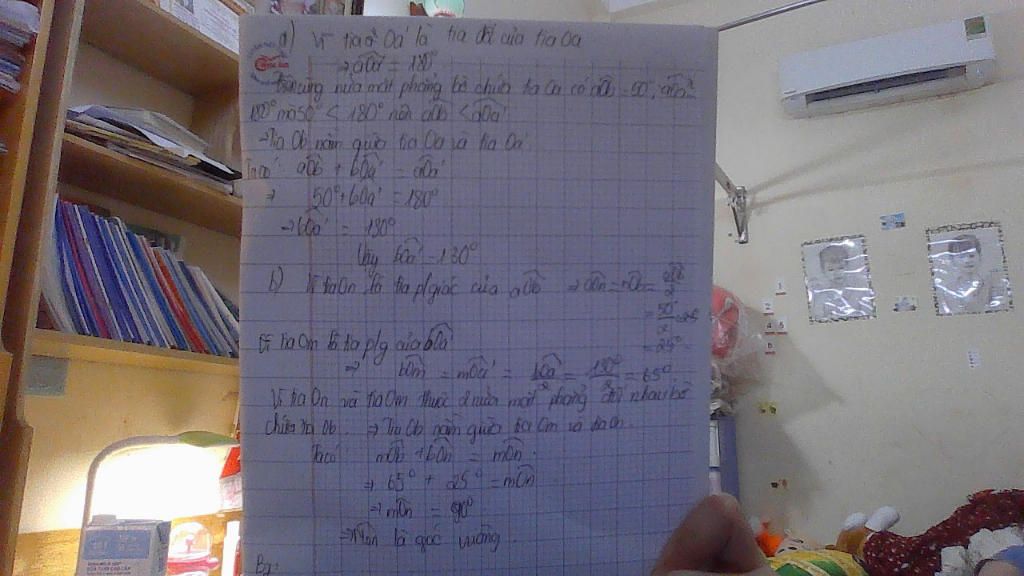 a) Vì tia Oa' là tia đối của tia Oa
⇒ aOa' = 180°
Trên cùng nửa mặt phẳng bờ chứa tia Oa có aOb = 50°, aOa' =
180° mà 50° < 180° nên aOb < aOa'
⇒ Tia Ob nằm giữa tia Oa và tia Oa'
Ta có: aOb + bOa' = aOa'
⇒ 50° + bOa' = 180°
⇒ bOa' = 130°
Vậy bOa' = 130°
b) Vì tia On là tia p/giác của aOb ⇒ aOn = nOb = aOb/2
= 50°/2
= 25°
Vì tia Om là tia p/g của bOa'
⇒ bOm = mOa' = bOa'/2 = 130°/2 = 65°
Vì tia On và tia Om thuộc 2 nửa mặt phẳng đối nhau bờ
chứa tia Ob ⇒ Tia Ob nằm giữa tia Om và tia On.
Ta có: mOb + bOn = mOn.
⇒ 65° + 25° = mOn
⇒ mOn = 90°
⇒ mOn là góc vuông.
B2: